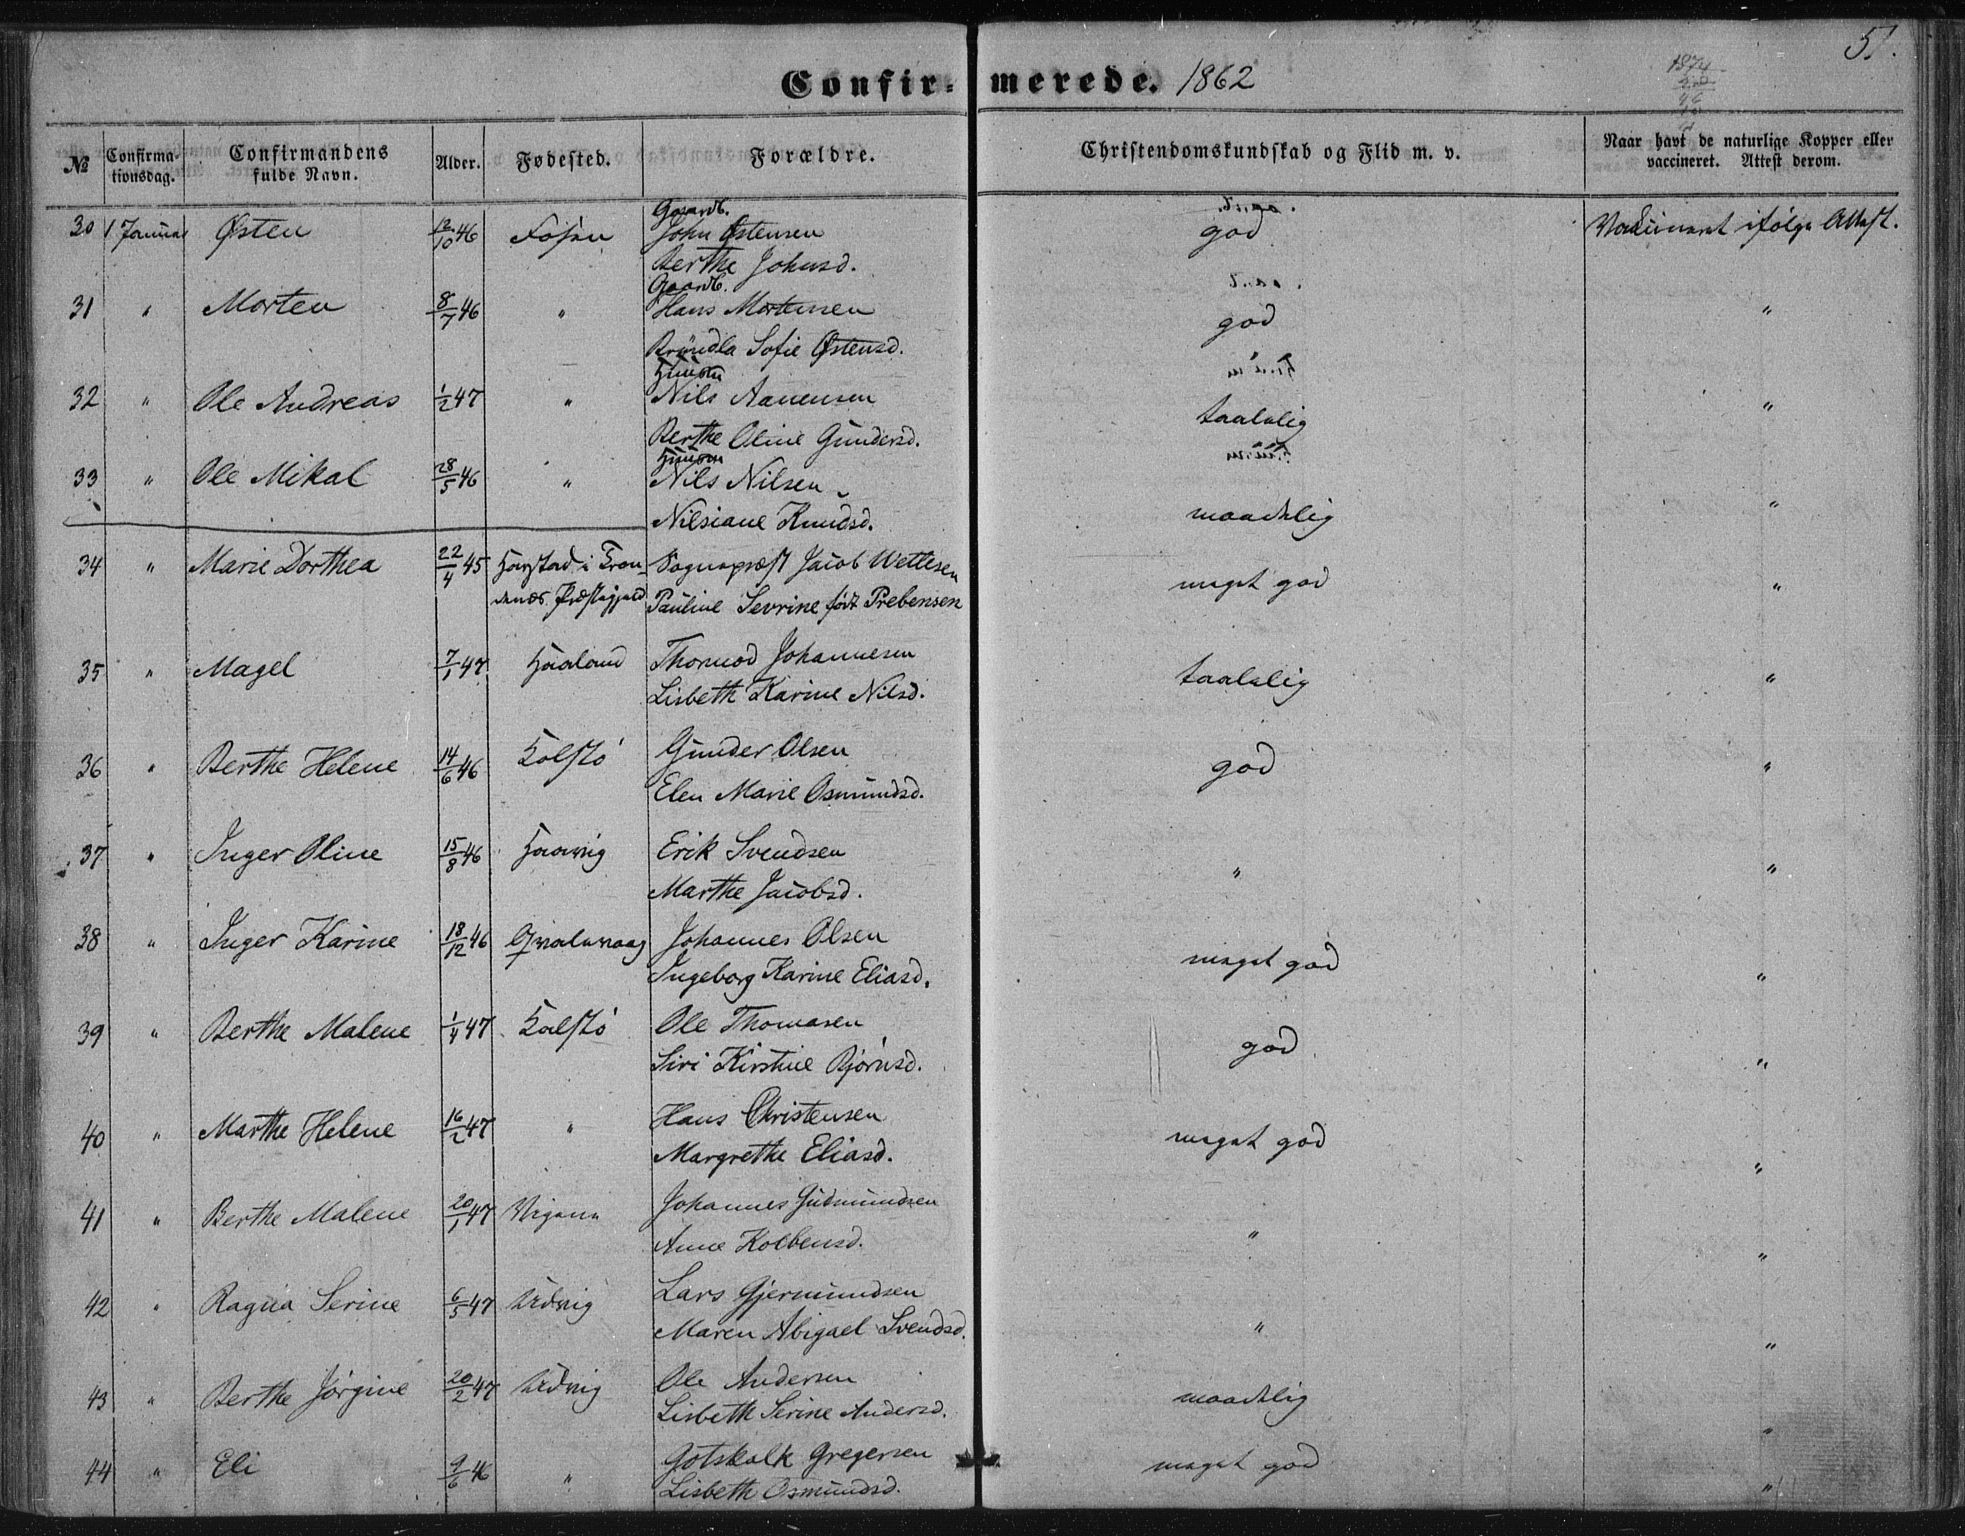 51.
Confirmerede. 1862
1874
№ Confirmationsdag. Confirmandens fulde Navn. Alder. Fødested. Forældre. Christendomskundskab og Flid m. v. Naar havt de naturlige Kopper eller vaccineret. Attest derom.
Gaardb.
30 1 Januar Østen 12/10 46 Fosen John Østensen god Vaccineret ifølge Attest.
Berthe Johnsd.
Gaardb.
31 " Morten 8/7 46 " Hans Mortensen god "
Brøndla Sofie Østensd.
Huusm
32 " Ole Andreas 1/2 47 " Nils Aanensen taalelig "
Berthe Oline Gundersd.
Huusm
33 " Ole Mikal 28/5 46 " Nils Nilsen maadelig "
Nilsiane Knudsd.
34 " Marie Dorthea 22/4 45 Harstad i Tron- Sognepræst Jacob Wettesen meget god "
denæs Præstegjæld Pauline Sevrine født Prebensen
35 " Magel 7/1 47 Haaland Thormod Johannesen taalelig "
Lisbeth Karine Nilsd.
36 " Berthe Helene 14/6 46 Kolstø Gunder Olsen god "
Elen Marie Osmundsd.
37 " Inger Oline 15/8 46 Haavig Erik Svendsen " "
Marthe Jacobsd.
38 " Inger Karine 18/12 46 Qvalavaag Johannes Olsen meget god "
Ingeborg Karine Eliasd.
39 " Berthe Malene 1/4 47 Kolstø Ole Thomasen god "
Siri Kirstine Bjørnsd.
40 " Marthe Helene 16/2 47 " Hans Christensen meget god "
Margrethe Eliasd.
41 " Berthe Malene 20/1 47 Vigene Johannes Gudmundsen " "
Anne Kolbensd.
42 " Ragna Serine 6/5 47 Udvig Lars Gjermundsen " "
Maren Abigael Svendsd.
43 " Berthe Jørgine 20/2 47 Udvig Ole Andersen maadelig "
Lisbeth Serine Andersd.
44 " Eli 9/6 46 " Gotskalk Gregersen meget god "
Lisbeth Osmundsd.